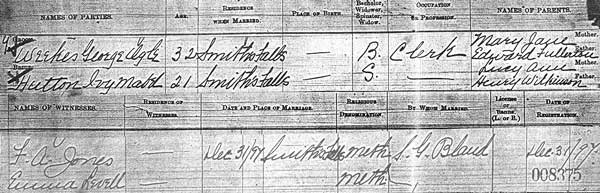 NAMES OF PARTIES. AGE. RESIDENCE WHEN MARRIED. PLACE OF BIRTH Bachelor, Widower, Spinster, Widow. OCCUPATION OR PROFESSION. NAMES OF PARENTS.
Groom Mary Jane Mother.
Weekes George 32 Smiths Falls — B. Clerk Edward Father.
Bride Lucy Ann Mother.
Hutton Ivy Maud 21 Smiths Falls — S. Henry Wilkinson Father.
NAMES OF WITNESSES. RESIDENCE OF WITNESSES. DATE AND PLACE OF MARRIAGE. RELIGIOUS DENOMINATION. BY WHOM MARRIED. License or Banns. (L. or B.) DATE OF REGISTRATION.
F. A. Jones — Dec 31/97 Smiths Falls Meth S. G. Bland Dec 31/97
Emma Revell — Meth 008375